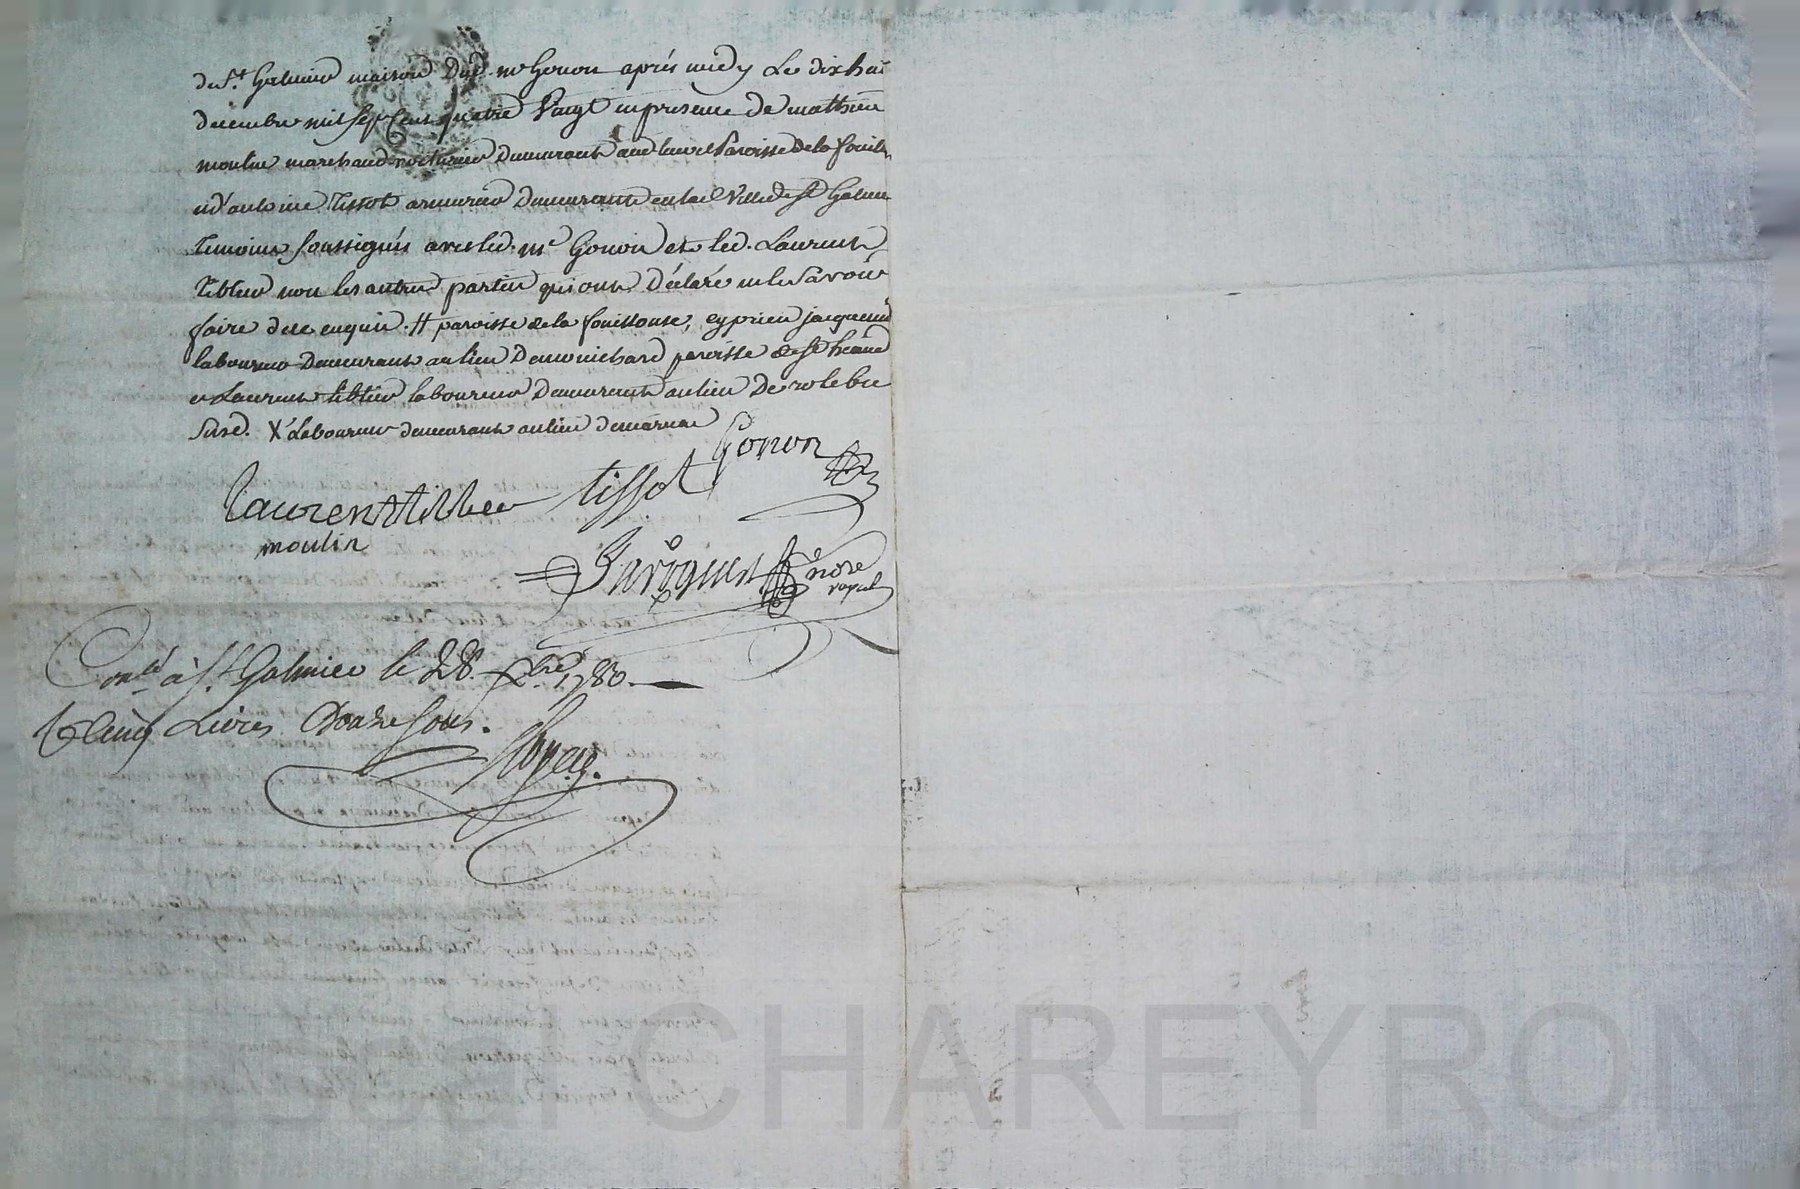 de St. Galmier maison dud. me Gonon après midy Le dix huit
decembre mil sept Cent quatre Vingt en presence de mathieu
moulin marchand voiturier demeurant au lieu et Paroisse de la fouill
et d'antoine Tissot armurier demeurant en lad. Ville de St Galmier
Temoins soussignés avec led. me Gonon et led. Laurent
Tiblier non les autres parties qui ont déclaré ne le Savoir
faire de ce enquis. # paroisse de la fouillouse, cyprien jacquemd
laboureur demeurant au lieu de paroisse de St heand
et Laurent tiblier laboureur demeurant au lieu de
Susd. X Laboureur demeurant au lieu de
Gonon
Laurent tiblier tissot
moulin
nore
royal
Conlé à St. Galmier le 28. Xbre 1780.
Cinq Livres Douze Sous.
Pascal CHAREYRON